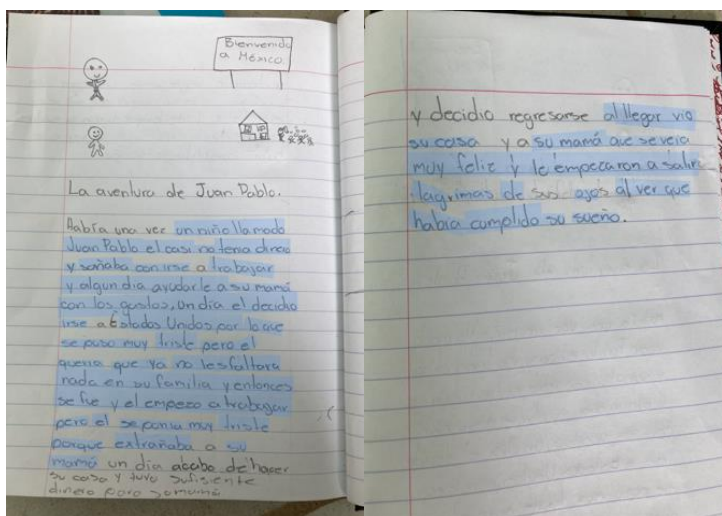 Bienvenido
a México.
La aventura de Juan Pablo.
Habría una vez un niño llamado
Juan Pablo el casi no tenia dinero
y soñaba con irse a trabajar
y algun dia ayudarle a su mamá
con los gastos, Un día el decidio
irse a Estados Unidos por lo que
se puso muy triste pero el
queria que ya no les faltara
nada en su familia y entonces
se fue y el empezo a trabajar
pero el se ponia muy triste
porque extrañaba a su
mamá un dia acabo de hacer
su casa y tuvo sufisiente
dinero para su mamá
y decidio regresarse al llegar vio
su casa y a su mamá que se veia
muy feliz y le empezaron a salir
lagrimas de sus ojos al ver que
habia cumplido su sueño.